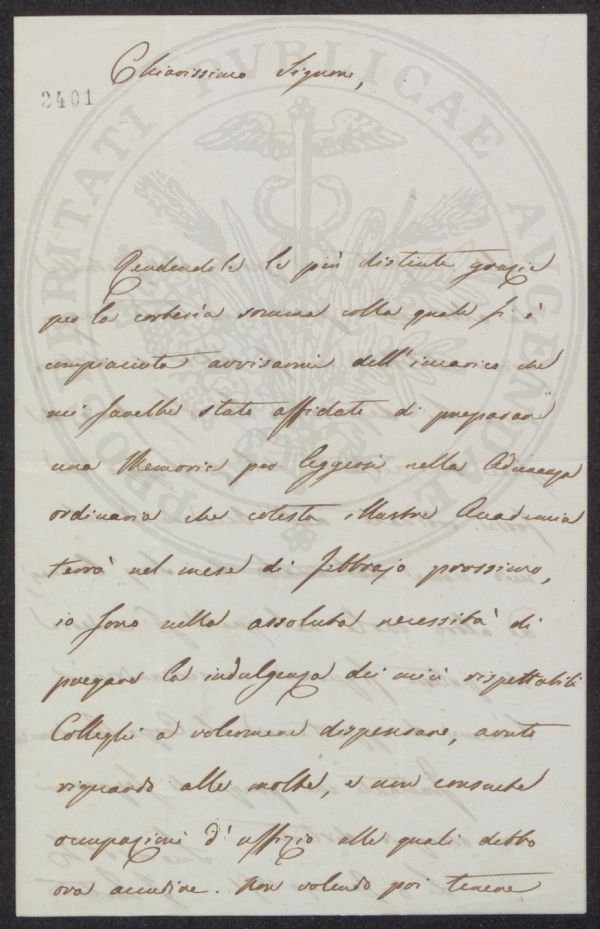 Chiarissimo Signore,
2401
Rendendole le più distinte grazie
per la cortesia somma colla quale si è
compiaciuta avvisarmi dell'incarico che
mi sarebbe stato affidato di preparare
una Memoria per leggersi nella Adunanza
ordinaria che cotesta illustre Accademia
terrà nel mese di febbrajo prossimo,
io sono nella assoluta necessità di
pregare la indulgenza dei miei rispettabili
Colleghi a volermene dispensare, avuto
riguardo alle molte, e non consuete
occupazioni d'uffizio alle quali debbo
ora accudire. Non volendo poi tenere
PROSPERITATI PVBLICAE AVGENDAE